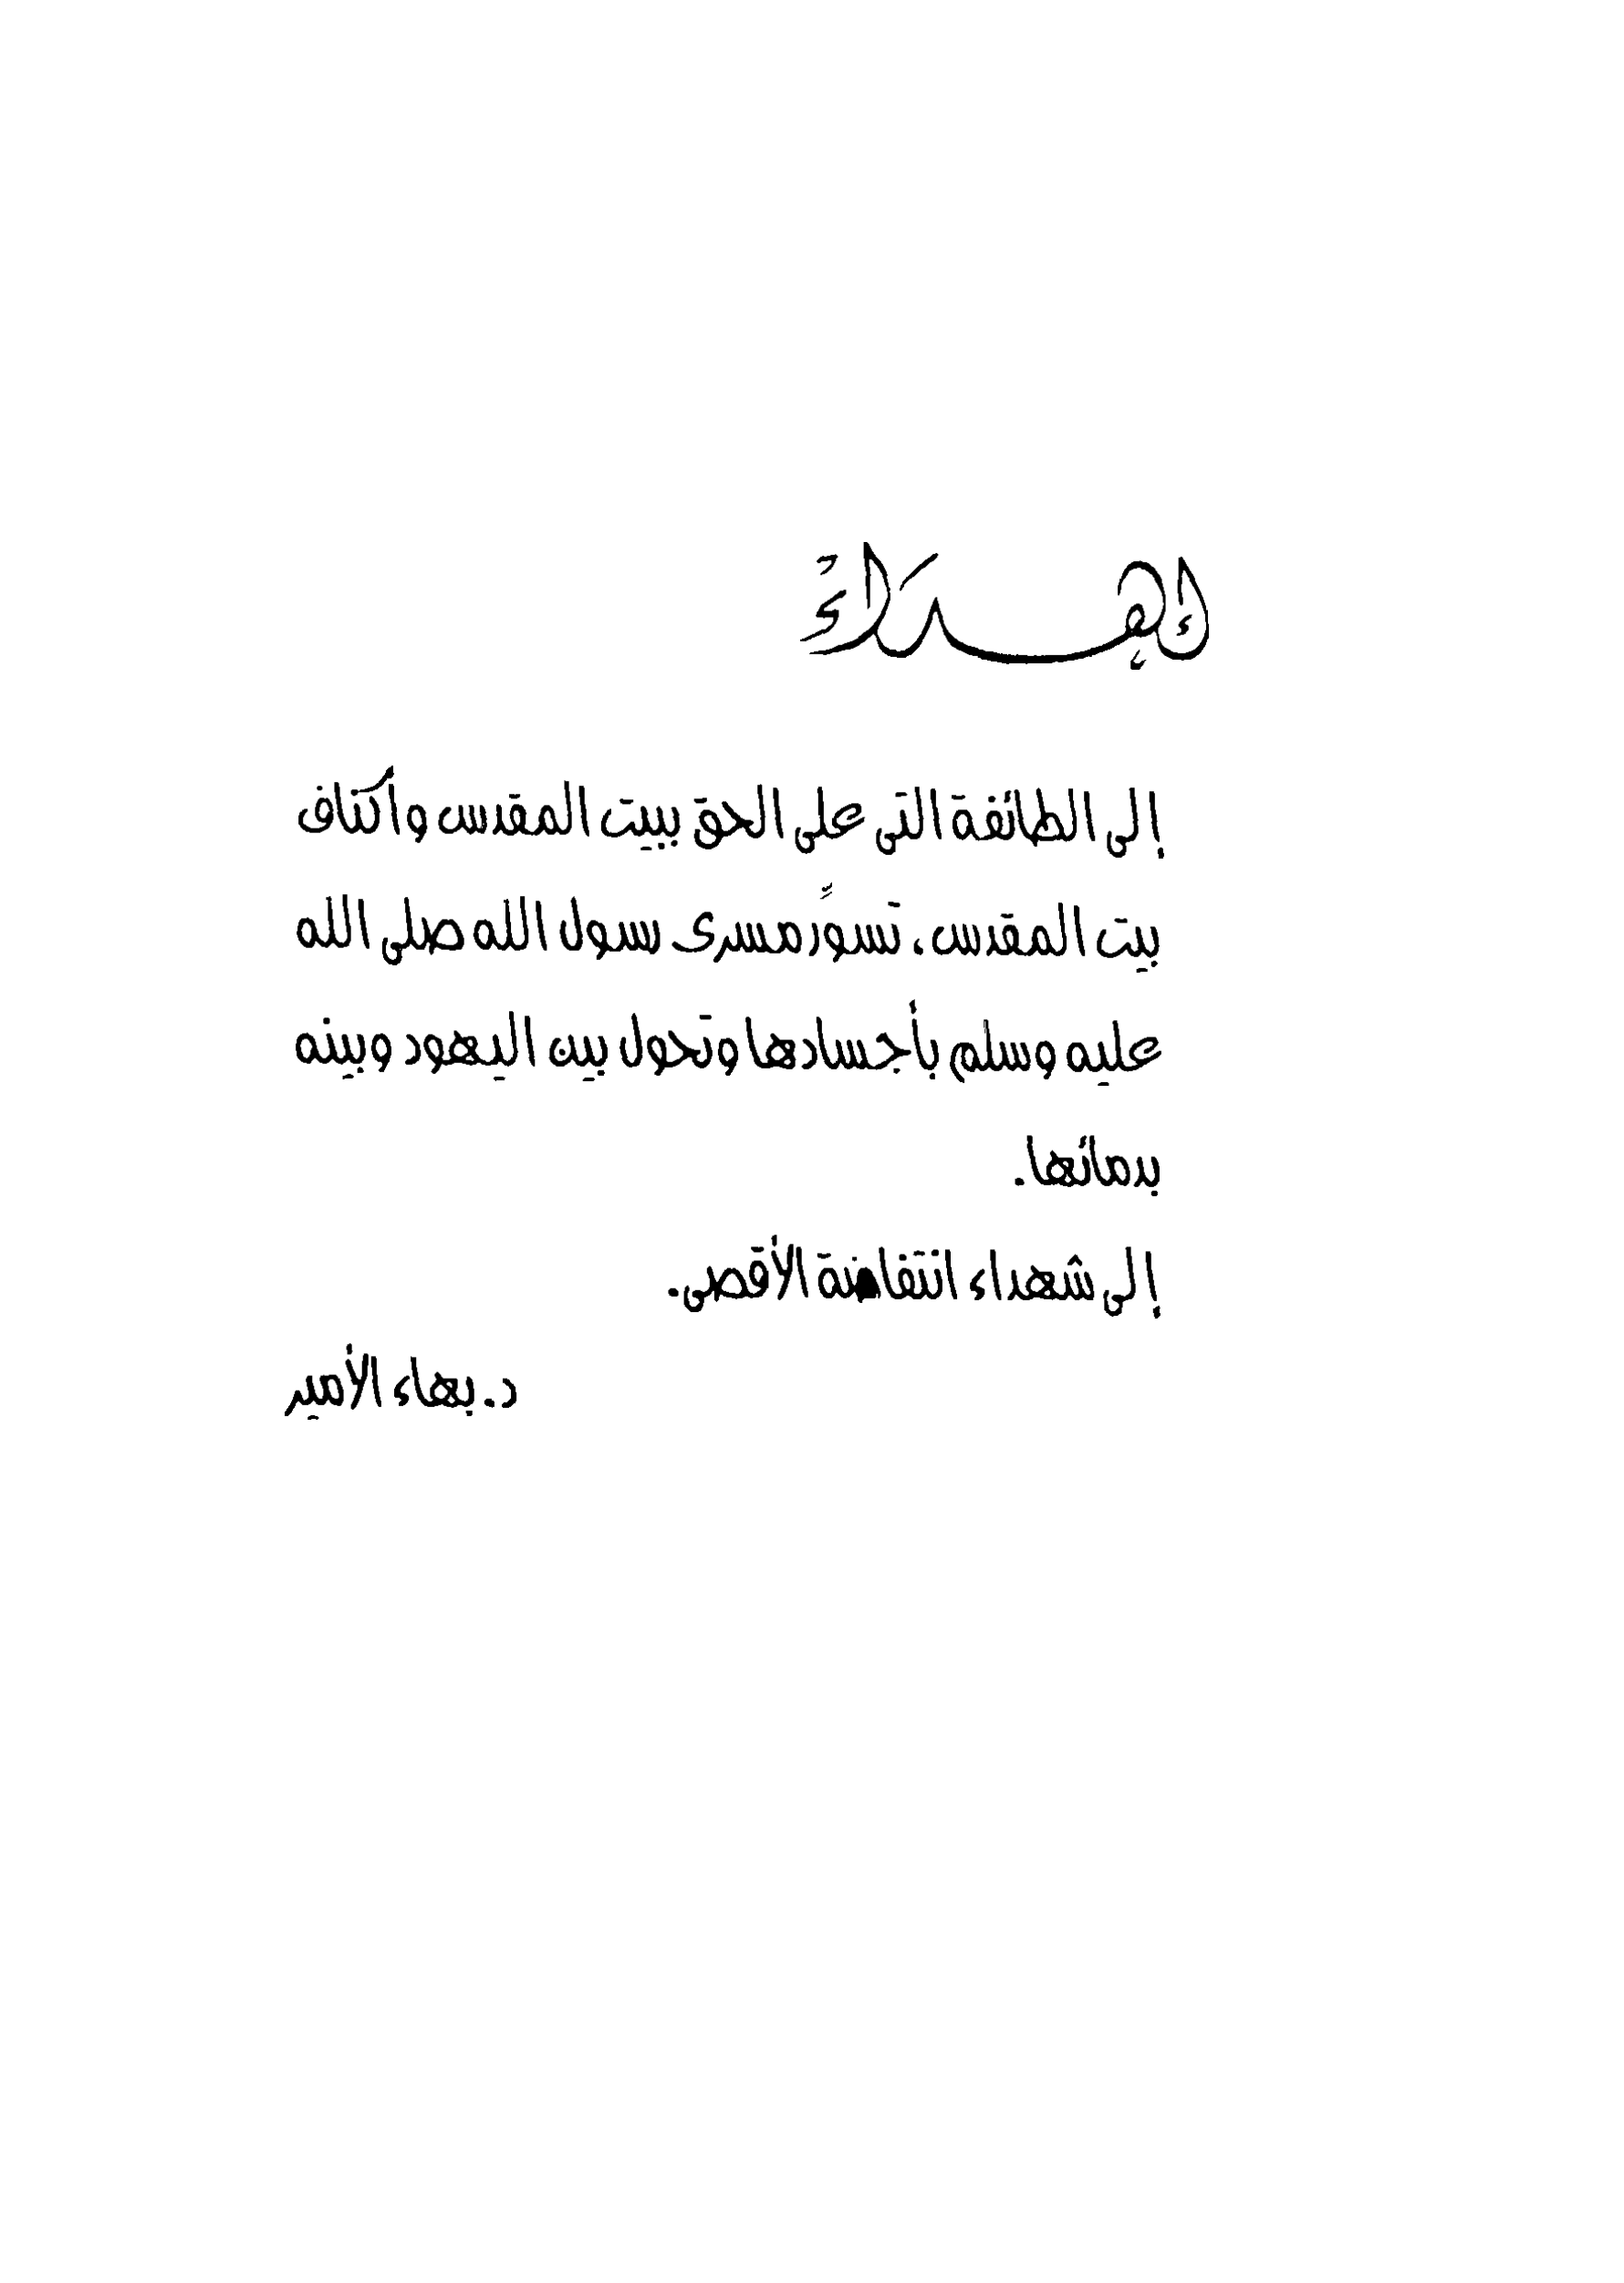 إهداءُ
إلى الطائفة التى على الحق ببيت المقدس وأكناف
بيت المقدس، تسوِّر مسرى رسول الله صلى الله
عليه وسلم بأجسادها وتحول بين اليهود وبينه
بدمائها.
إلى شهداء انتفاضة الأقصى.
د. بهاء الأمير